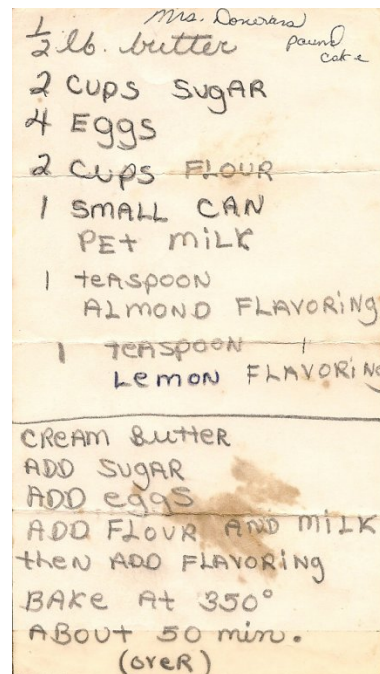 Mrs.
pound
cake
1/2 lb. butter
2 cups SugAR
4 Eggs
2 Cups FLOUR
1 SMALL CAN
PEt miLK
1 teASPOON
ALMOND FLAVORiNg
1 teASPOON
Lemon FLAVORiNg
CREAM Butter
ADD SUgAR
ADD eggs
ADD FLOUR AND MiLK
then ADD FLAVORiNg
BAKe At 350°
ABout 50 min.
(oveR)